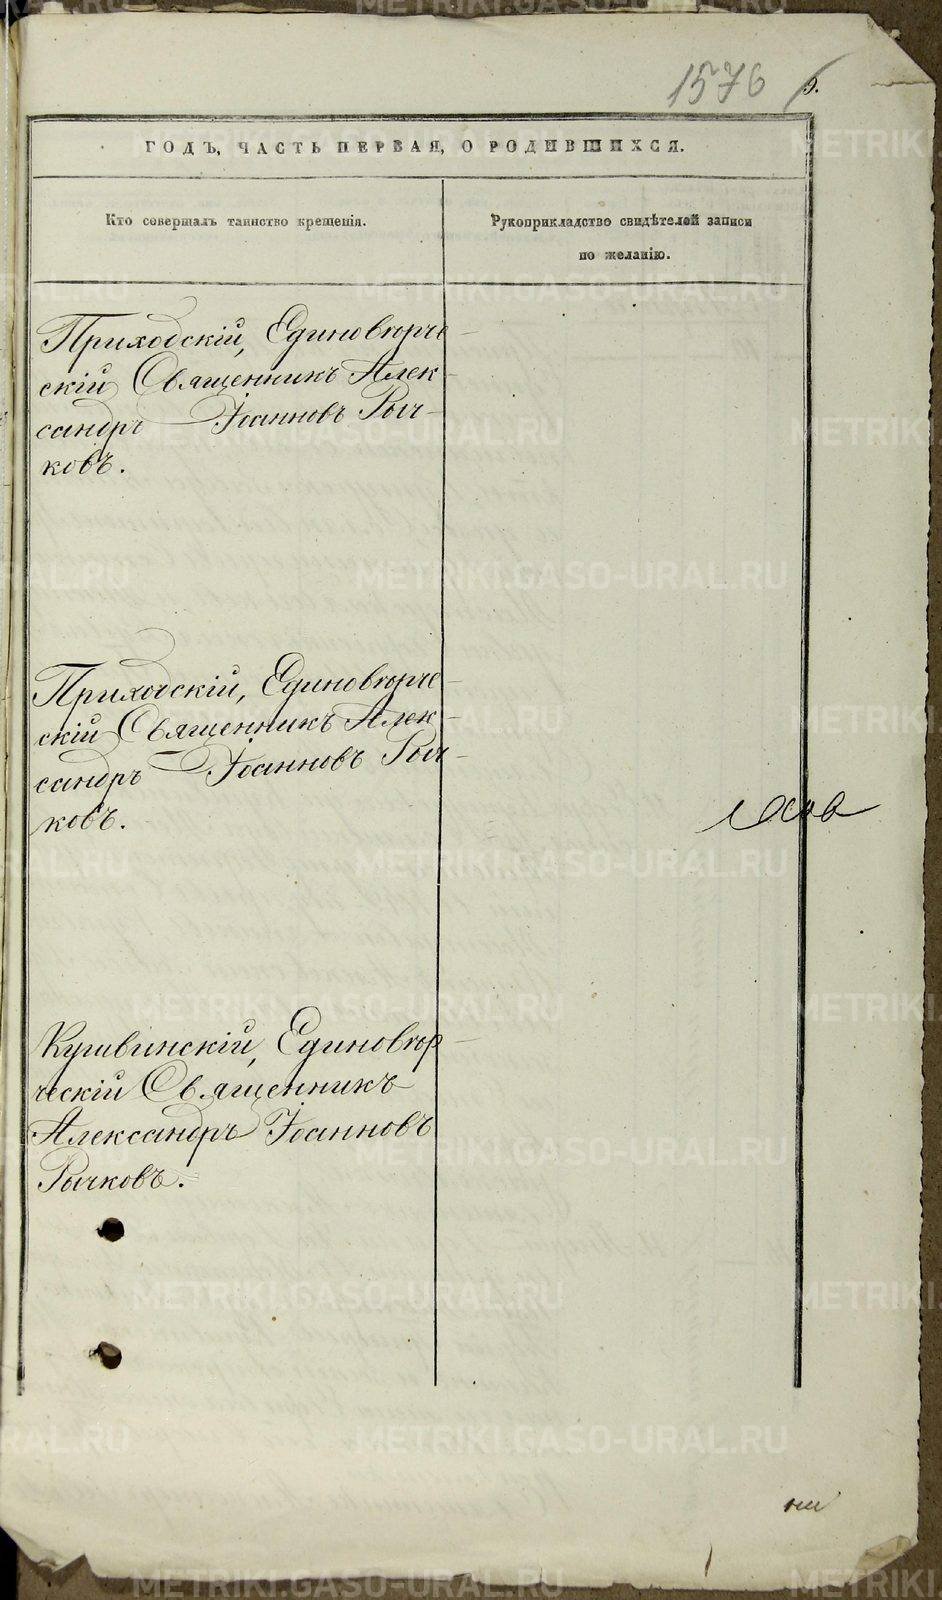 1576 9.
ГОДЪ, ЧАСТЬ ПЕРВАЯ, О РОДИВШИХСЯ.
Кто совершалъ таинство крещенія.
Рукоприкладство свидѣтелей записи
по желанію.
Приходскій, Единоверче
скій Священникъ Алек
сандръ Іоанновъ Рыч-
ковъ.
Приходскій, Единоверче
скій Священникъ Алек
сандръ Іоанновъ Рыч
ковъ.
Кушвинскій, Единовер
ческій Священникъ
Александръ Іоанновъ
Рычковъ.
METRIKI.GASO-URAL.RU